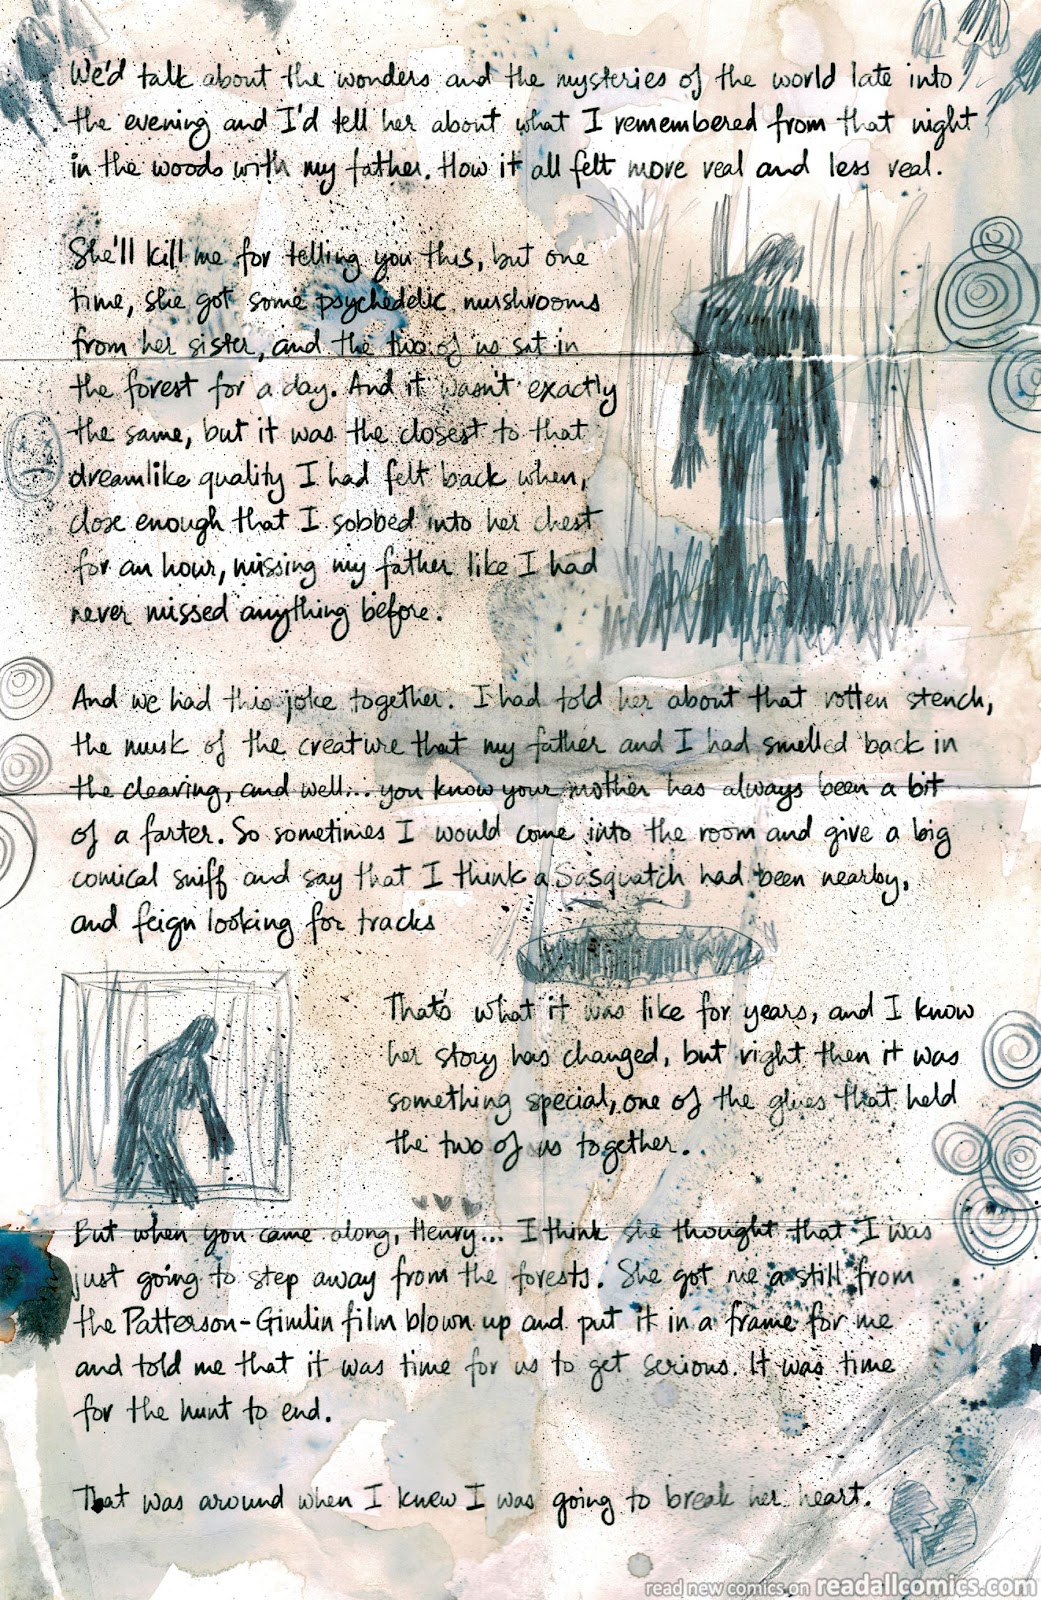 We'd talk about the wonders and the mysteries of the world late into
the evening and I'd tell her about what I remembered from that night
in the woods with my father. How it all felt more real and less real.
She'll kill me for telling you this, but one
time, she got some psychedelic mushrooms
from her sister, and the two of us sat in
the forest for a day. And it wasn't exactly
the same, but it was the closest to that
dreamlike quality I had felt back when,
close enough that I sobbed into her chest
for an hour, missing my father like I had
never missed anything before.
And we had this joke together. I had told her about that rotten stench,
the musk of the creature that my father and I had smelled back in
the clearing, and well... you know your mother has always been a bit
of a farter. So sometimes I would come into the room and give a big
comical sniff and say that I think a Sasquatch had been nearby,
and feign looking for tracks
That's what it was like for years, and I know
her story has changed, but right then it was
something special, one of the glues that held
the two of us together.
But when you came along, Henry... I think she thought that I was
just going to step away from the forests. She got me a still from
the Patterson-Gimlin film blown up and put it in a frame for me
and told me that it was time for us to get serious. It was time
for the hunt to end.
That was around when I knew I was going to break her heart.
read new comics on readallcomics.com